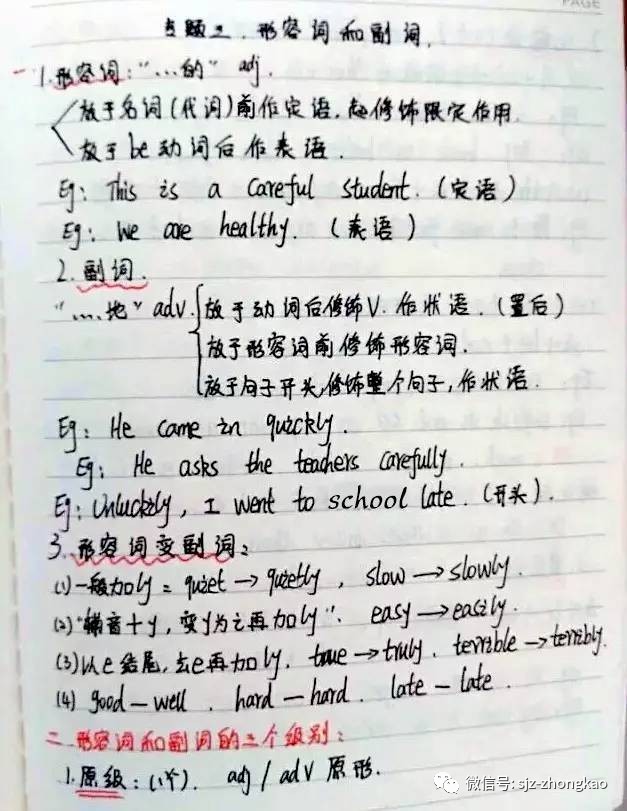 PAGE
专题二. 形容词和副词.
一 1.形容词: “…的” adj.
放于名词(代词)前作定语, 起修饰限定作用.
放于be动词后作表语.
Eg: This is a careful student. (定语)
Eg: We are healthy. (表语)
2.副词.
“…地” adv. 放于动词后修饰V. 作状语. (置后)
放于形容词前修饰形容词.
放于句子开头,修饰整个句子, 作状语.
Eg: He came in quickly.
Eg: He asks the teachers carefully.
Eg: Unluckily, I went to school late. (开头).
3. 形容词变副词:
(1)一般加ly = quiet → quietly, slow → slowly.
(2) “辅音+y, 变y为i再加ly”. easy → easily.
(3)以e结尾, 去e再加ly. true → truly. terrible → terribly.
(4) good — well. hard — hard. late — late.
二. 形容词和副词的三个级别:
1.原级: (1个). adj / adv 原形.
微信号: sjz-zhongkao